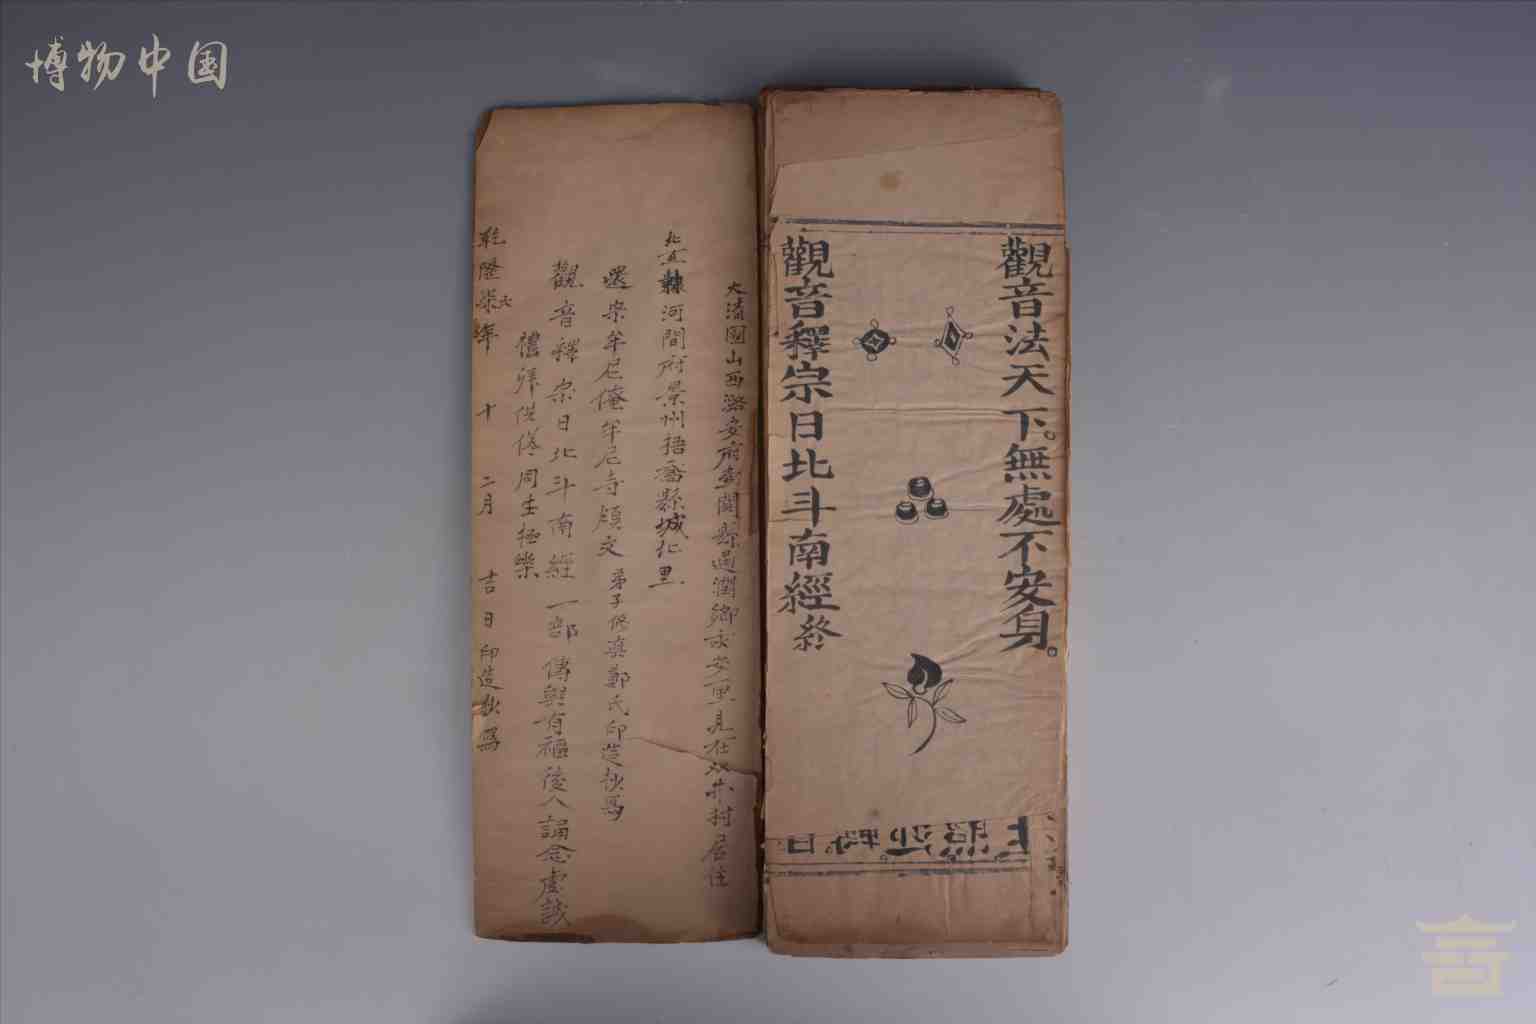 博物中国
觀音法天下。無處不安身。
觀音釋宗日北斗南經終
大清國山西潞安府壺關縣過澗鄉永安里見在双井村居住
北直隸河間府景州梧喬縣城北里
還樂牟尼俺牟尼寺領文 弟子修真鄭氏印造抄寫
觀音釋宗日北斗南經一部傳與有禄後人誦念虔誠
禮拜供俸同生極樂
乾隆柒年 十二月 吉日印造抄寫